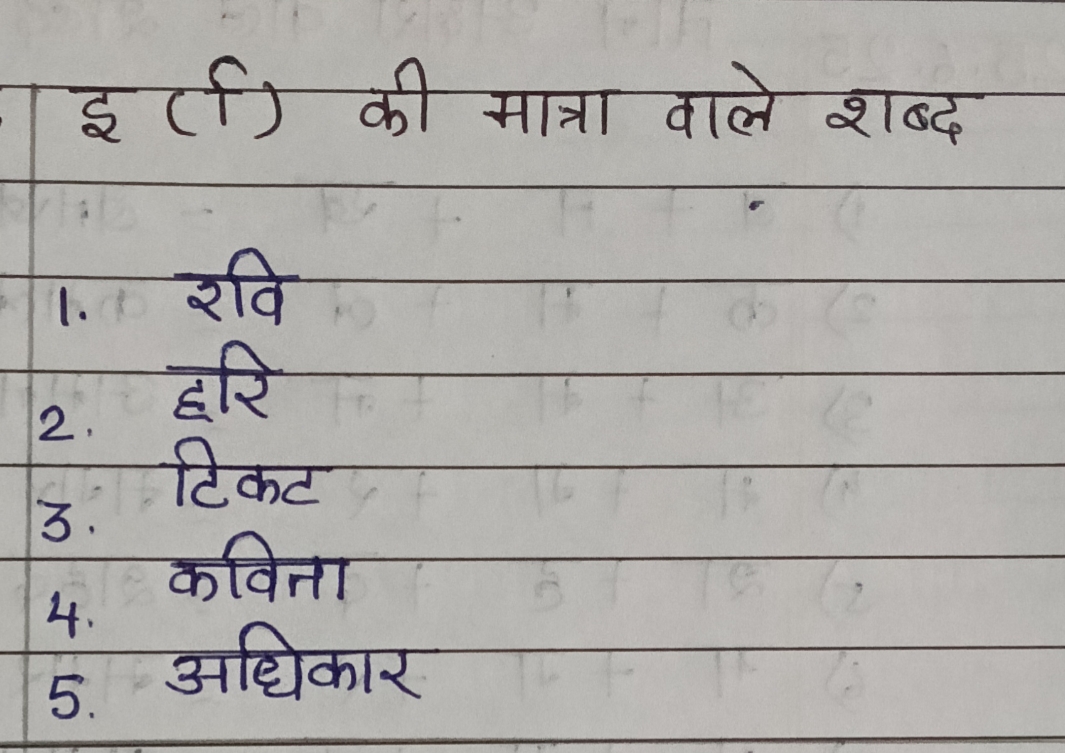 इ (ि) की मात्रा वाले शब्द
1. रवि
2. हरि
3. टिकट
4. कविता
5. अधिकार